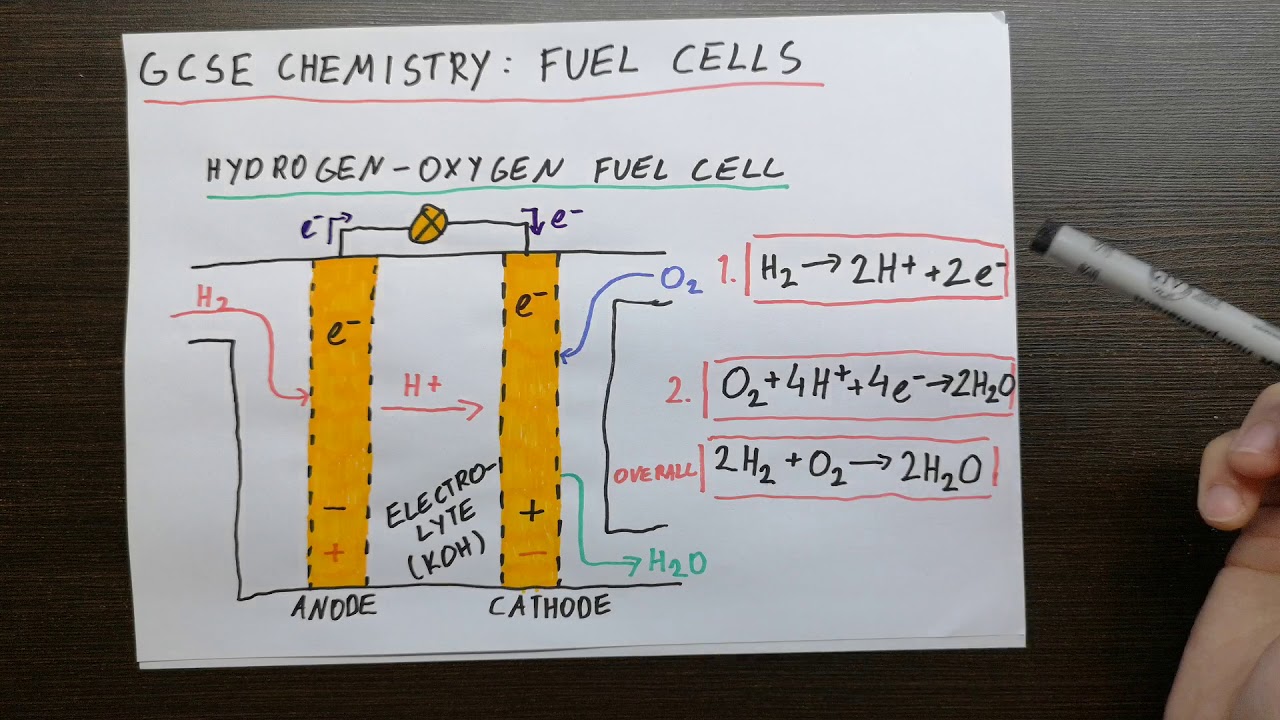 GCSE CHEMISTRY: FUEL CELLS
HYDROGEN-OXYGEN FUEL CELL
e⁻
e⁻
H₂
O₂
e⁻
e⁻
H+
ELECTRO-
LYTE
(KOH)
−
+
+
−
H₂O
ANODE
CATHODE
1. H₂ → 2H⁺ + 2e⁻
2. O₂ + 4H⁺ + 4e⁻ → 2H₂O
OVERALL 2H₂ + O₂ → 2H₂O